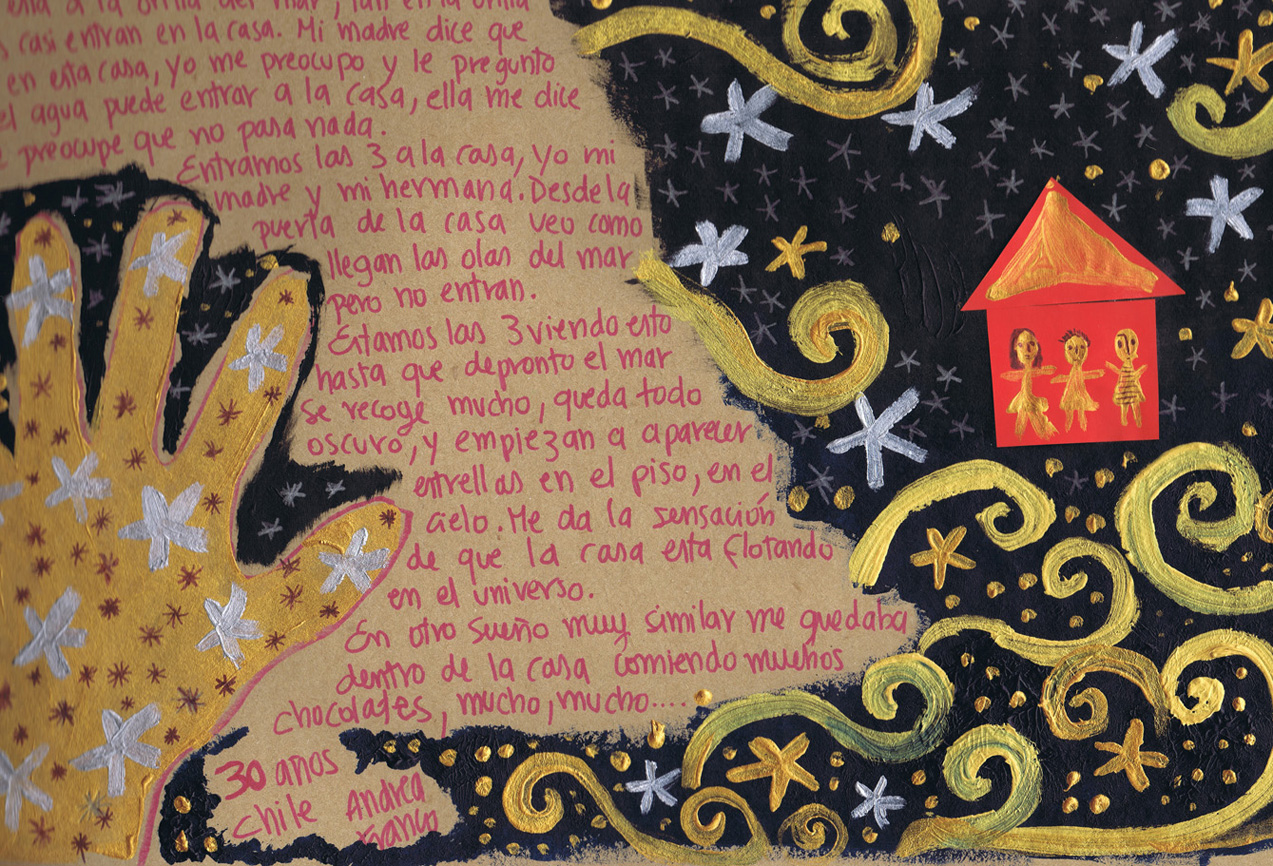 a la orilla del mar, tan en la orilla
casi entran en la casa. Mi madre dice que
en esta casa, yo me preocupo y le pregunto
el agua puede entrar a la casa, ella me dice
preocupe que no pasa nada.
Entramos las 3 a la casa, yo mi
madre y mi hermana. Desde la
puerta de la casa veo como
llegan las olas del mar
pero no entran.
Estamos las 3 viendo esto
hasta que depronto el mar
se recoge mucho, queda todo
oscuro, y empiezan a aparecer
estrellas en el piso, en el
cielo. Me da la sensación
de que la casa esta flotando
en el universo.
En otro sueño muy similar me quedaba
dentro de la casa comiendo muchos
chocolates, mucho, mucho....
30 años
Chile Andrea